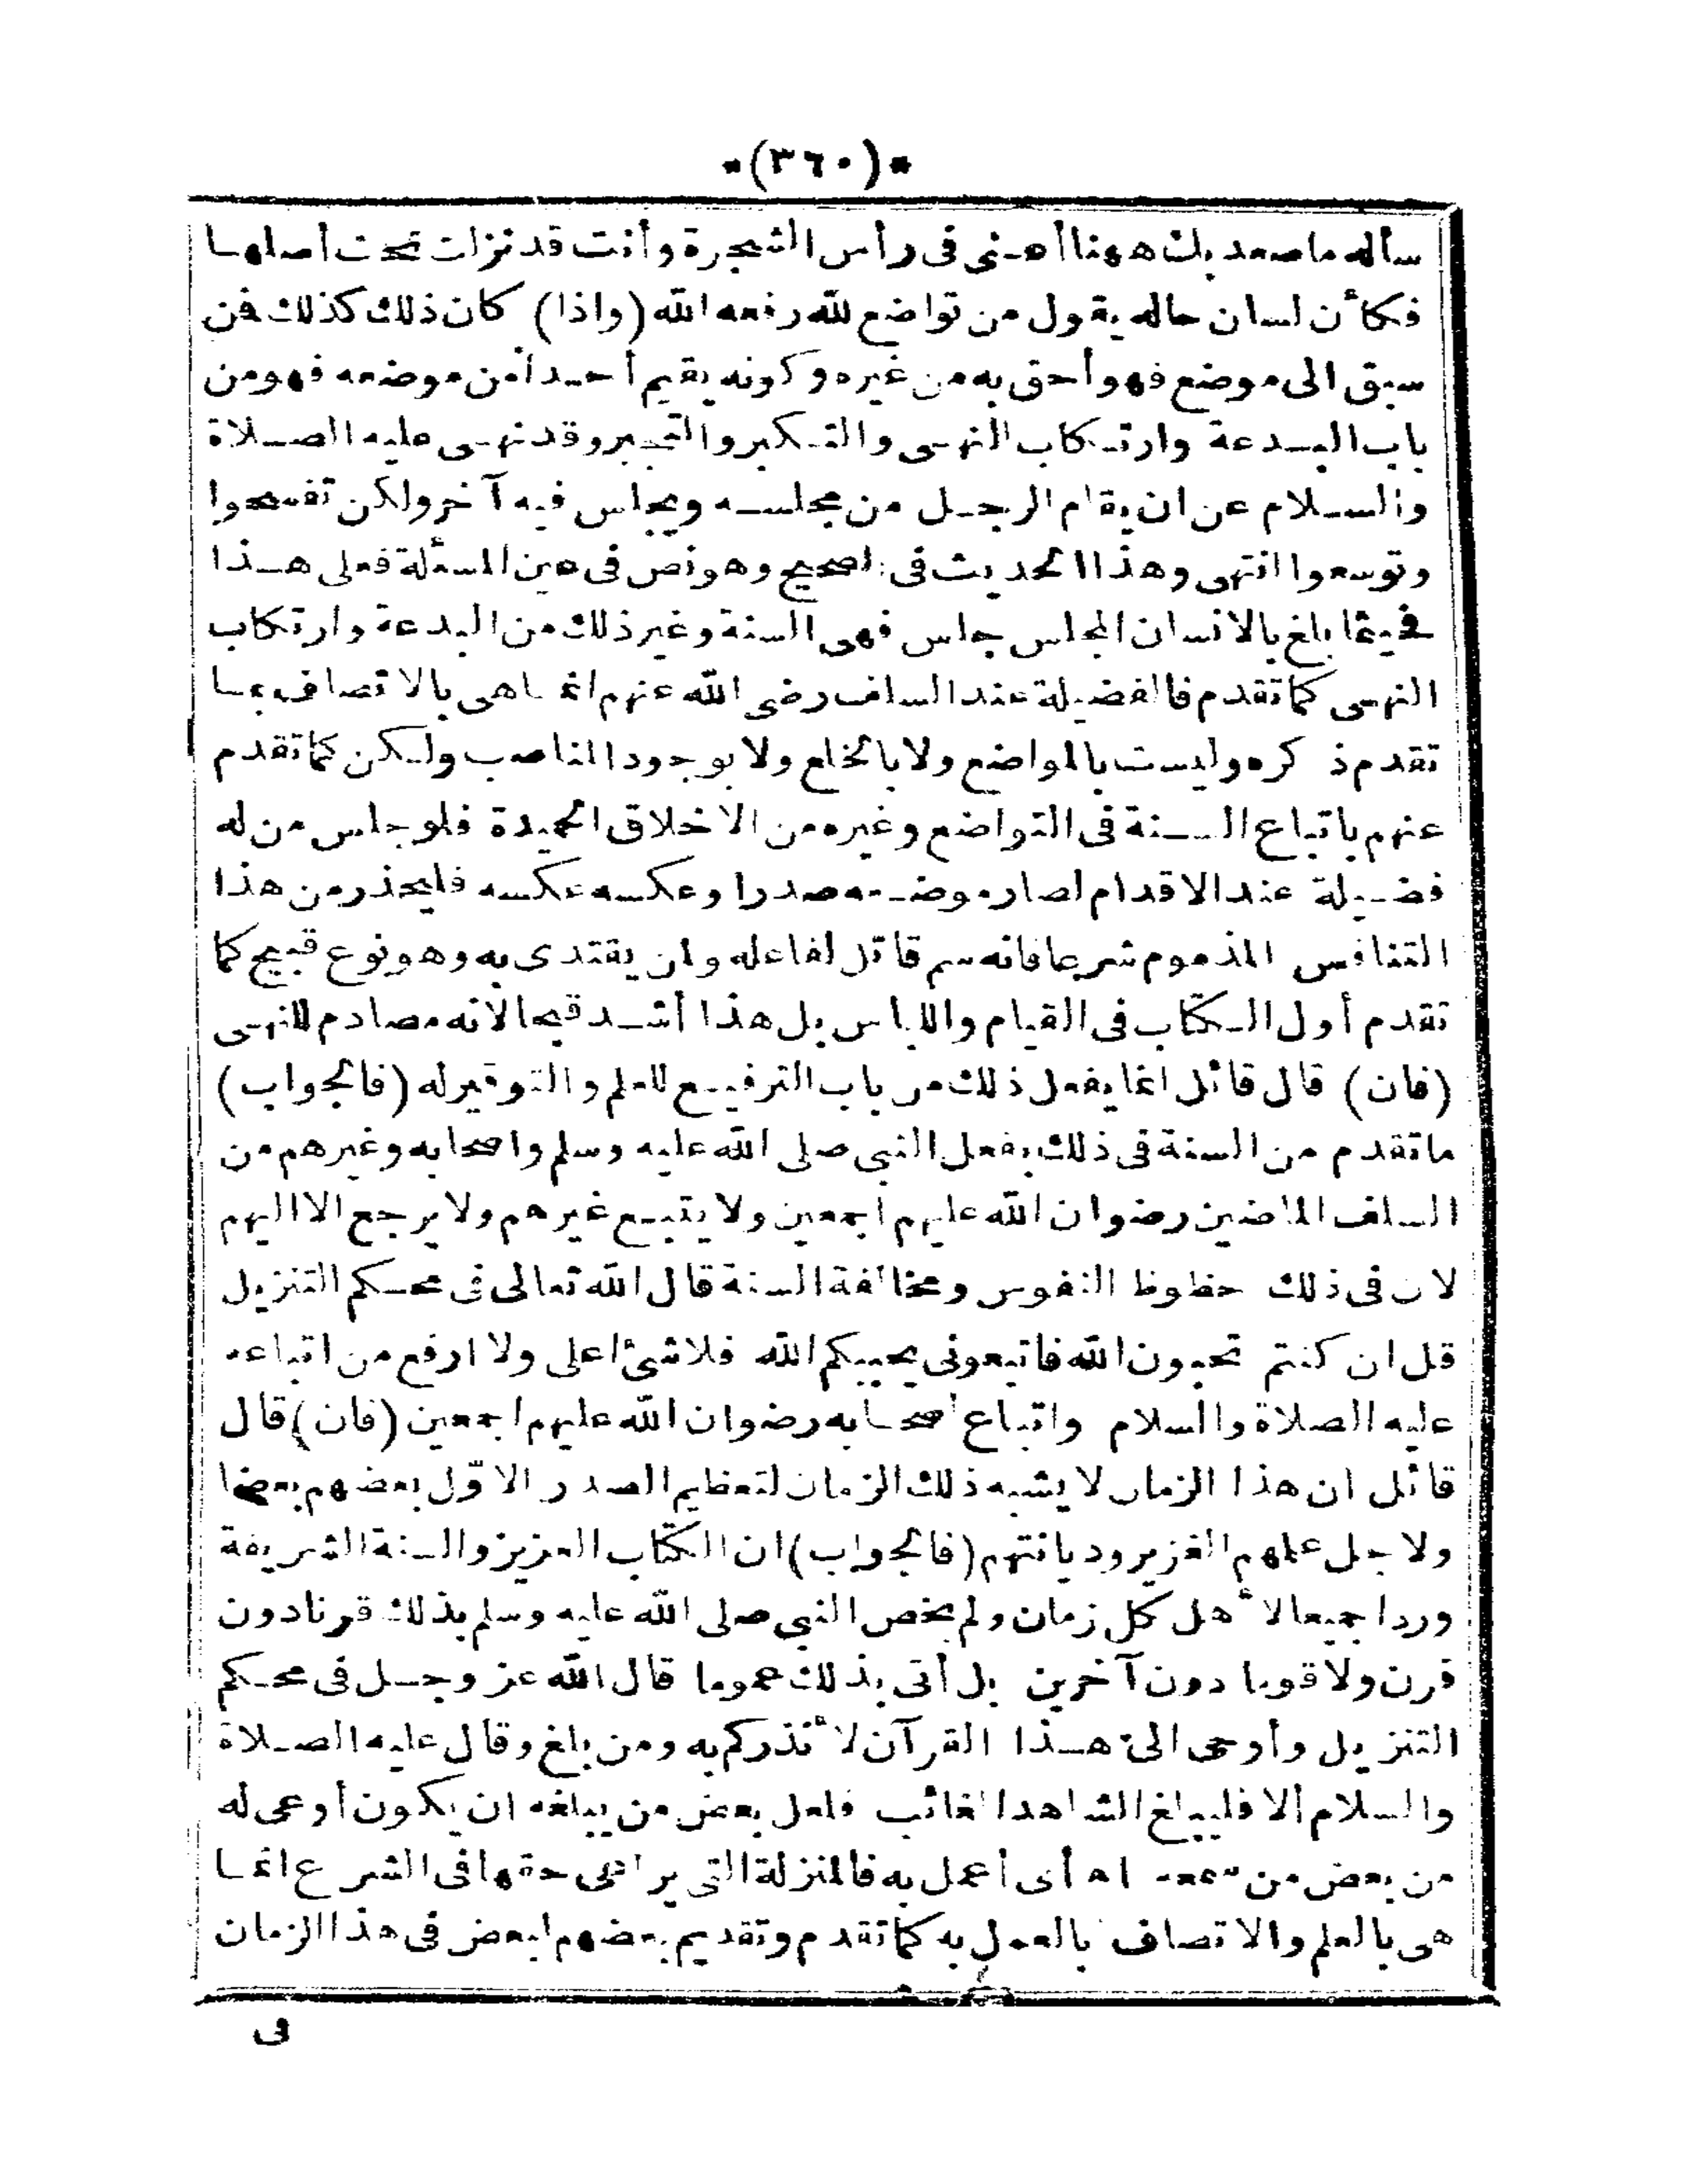 *(٣٦٠)*
سأله ما صعد بك ههنا أعنى فى رأس الشجرة وأنت قد نزلت تحت أصلها
فكأن لسان حاله يقول من تواضع لله رفعه الله (واذا) كان ذلك كذلك فمن
سبق الى موضع فهو أحق به من غيره وكونه يقيم أحدا من موضعه فهو من
باب البدعة وارتكاب النهى والتكبر والتجبر وقد نهى عليه الصلاة
والسلام عن ان يقام الرجل من مجلسه ويجلس فيه آخر ولكن تفسحوا
وتوسعوا انتهى وهذا الحديث فى الصحيح وهو نص فى عين المسألة فعلى هذا
فحيثما بلغ بالانسان المجلس جلس فهى السنة وغير ذلك من البدعة وارتكاب
النهى كما تقدم فالفضيلة عند السلف رضى الله عنهم انما هى بالاتصاف بما
تقدم ذكره وليست بالمواضع ولا بالخلع ولا بوجود المناصب ولكن كما تقدم
عنهم باتباع السنة فى التواضع وغيره من الاخلاق الحميدة فلو جلس من له
فضيلة عند الاقدام لصار موضعه صدرا وعكسه عكسه فليحذر من هذا
التنافس المذموم شرعا فانه سم قاتل لفاعله ولمن يقتدى به وهو نوع قبيح كما
تقدم أول الكتاب فى القيام واللباس بل هذا أشد قبحا لانه مصادم للنهى
(فان) قال قائل انما يفعل ذلك من باب الترفيع للعلم والتوقير له (فالجواب)
ما تقدم من السنة فى ذلك بفعل النبى صلى الله عليه وسلم واصحابه وغيرهم من
السلف الماضين رضوان الله عليهم اجمعين ولا يتبع غيرهم ولا يرجع الا اليهم
لان فى ذلك حظوظ النفوس ومخالفة السنة قال الله تعالى فى محكم التنزيل
قل ان كنتم تحبون الله فاتبعونى يحببكم الله فلا شئ اعلى ولا ارفع من اتباعه
عليه الصلاة والسلام واتباع أصحابه رضوان الله عليهم اجمعين (فان) قال
قائل ان هذا الزمان لا يشبه ذلك الزمان لتعظيم الصدر الاوّل بعضهم بعضا
ولاجل علمهم الغزير وديانتهم (فالجواب) ان الكتاب العزيز والسنة الشريفة
وردا جميعا لأهل كل زمان ولم يخص النبى صلى الله عليه وسلم بذلك قرنا دون
قرن ولا قوما دون آخرين بل أتى بذلك عموما قال الله عز وجل فى محكم
التنزيل وأوحى الىّ هذا القرآن لأنذركم به ومن بلغ وقال عليه الصلاة
والسلام ألا فليبلغ الشاهد الغائب فلعل بعض من يبلغه ان يكون أوعى له
من بعض من سمعه اه أى أعمل به فالمنزلة التى يراعى حقها فى الشرع انما
هى بالعلم والاتصاف بالعمل به كما تقدم وتقديم بعضهم لبعض فى هذا الزمان
فى